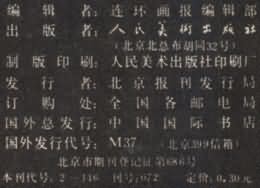 编辑者：连环画报编辑部
出版者：人民美术出版社
（北京北总布胡同32号）
制版印刷：人民美术出版社印刷厂
发行者：北京报刊发行局
订购处：全国各邮电局
国外总发行：中国国际书店
国外发行代号：M37（北京399信箱）
北京市期刊登记证第686号
本刊代号：2—146 刊号：072 定价：0.30元